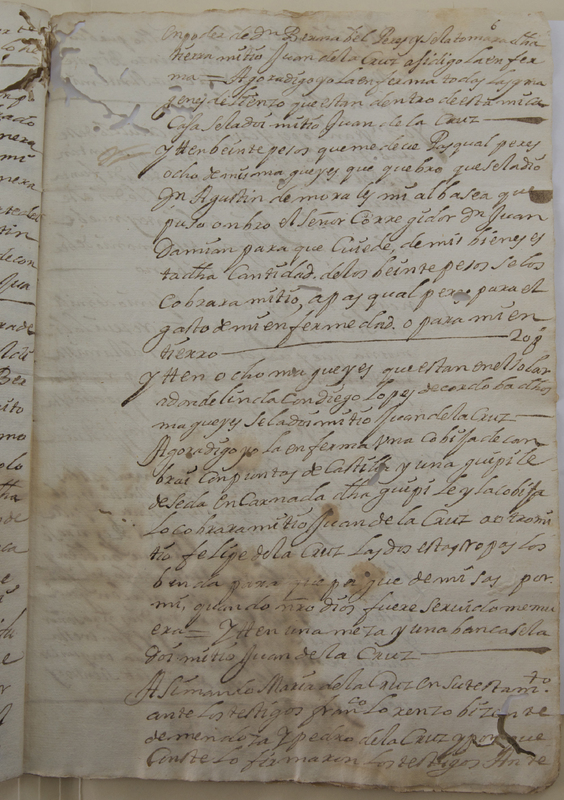 6
en poder de Dn Berna bel Perez se la tomara dha
tierra mi tio Juan de la Cruz asi digo la enfer
ma = Agora digo yo la enferma todas las yma
genes de lienzo que estan dentro de esta mi
Casa se las doi mi tio Juan de la Cruz
Ytten beinte pesos que me deve Pasqual peres
ocho de mis ma gueyes que quebro que se las dio
Dn Agustin de mora les mi albasea que
puso onbro el señor Corre gidor Dn Juan
Damian para que Cuide, de mis bienes es
ta dha Cantidad de los beinte pesos se los
Cobrara mi tio, a pasqual peres para el
gasto de mi enfermedad o para mi en
tierro 20 ps
Ytten ocho ma gueyes que estan en el solar
adonde linda Con diego Lopes de cordoba dhos
ma gueyes se las doi mi tio Juan de la Cruz
Agora digo yo la enferma una Cobija de can
brai Con puntas de Castilla y una guipi le
de seda enCarnada dha guipi le y la cobija
Lo cobrara mi tio Juan de la Cruz a otro mi
tio felipe de la Cruz las dos estas Ropas los
benda para que pague de misas por
mi, quando nro dios fuere seruido me mu
era = Ytten una meza y una banca se la
doi mi tio Juan de la Cruz
Asi mando Maria de la Cruz en su testamto
ante los testigos Franco Lo renzo bizente
de mendoza Y pedro de la Cruz y por que
Conste lo firmaron los testigos Ante